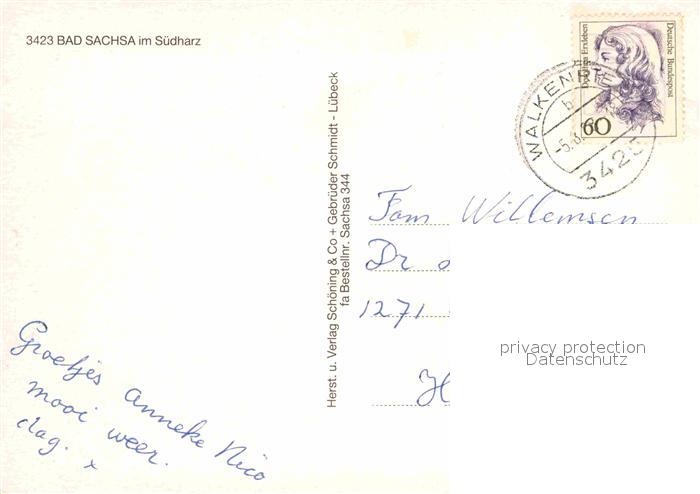 3423 BAD SACHSA im Südharz
Deutsche Bundespost
Dorothea Erxleben
60
WALKENRIED
b
3425
Herst. u. Verlag Schöning & Co + Gebrüder Schmidt - Lübeck
fa Bestellnr. Sachsa 344
Fam Willemsen
Dr
1271
privacy protection
Datenschutz
H
Groetjes Anneke Nico
mooi weer.
dag. x